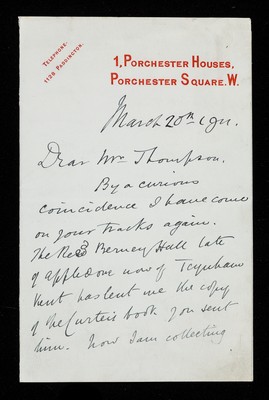 TELEPHONE:
1139 PADDINGTON.
1, PORCHESTER HOUSES,
PORCHESTER SQUARE. W.
March 20th 1911.
Dear Mr Thompson.
By a curious
coincidence I have come
on your tracks again.
The Revd Berney Hull late
of Appledore now of Teynham
Kent has lent me the copy
of the Curteis book you sent
him. Now I am collecting